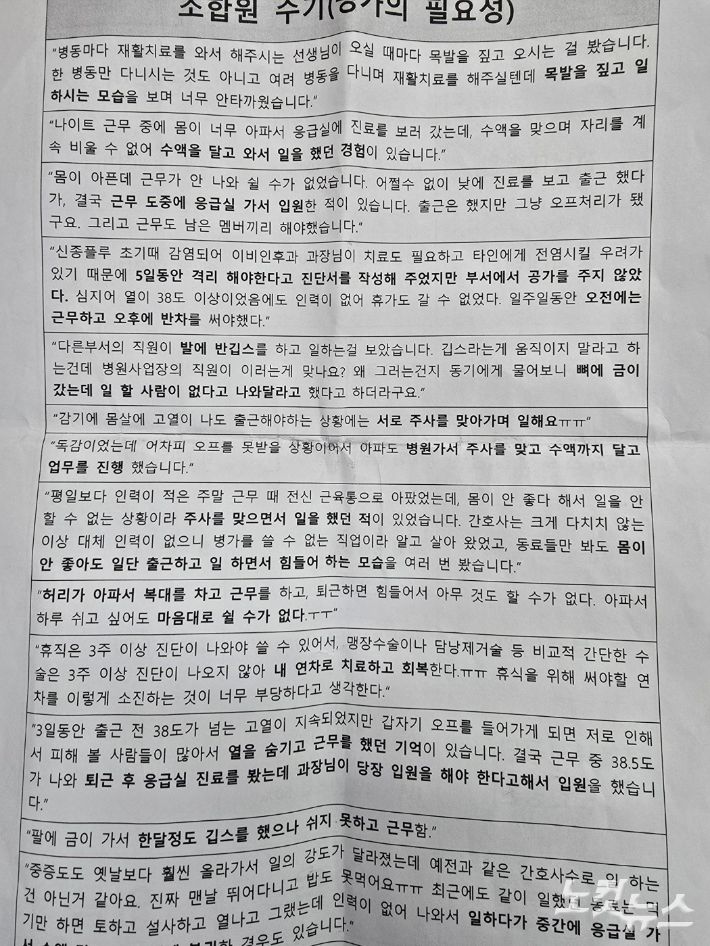 조합원 수기(공가의 필요성)
“병동마다 재활치료를 와서 해주시는 선생님이 오실 때마다 목발을 짚고 오시는 걸 봤습니다.
한 병동만 다니시는 것도 아니고 여러 병동을 다니며 재활치료를 해주실텐데 목발을 짚고 일
하시는 모습을 보며 너무 안타까웠습니다.”
“나이트 근무 중에 몸이 너무 아파서 응급실에 진료를 보러 갔는데, 수액을 맞으며 자리를 계
속 비울 수 없어 수액을 달고 와서 일을 했던 경험이 있습니다.”
“몸이 아픈데 근무가 안 나와 쉴 수가 없었습니다. 어쩔수 없이 낮에 진료를 보고 출근 했다
가, 결국 근무 도중에 응급실 가서 입원한 적이 있습니다. 출근은 했지만 그냥 오프처리가 됐
구요. 그리고 근무도 남은 멤버끼리 해야했습니다.”
“신종플루 초기때 감염되어 이비인후과 과장님이 치료도 필요하고 타인에게 전염시킬 우려가
있기 때문에 5일동안 격리 해야한다고 진단서를 작성해 주었지만 부서에서 공가를 주지 않았
다. 심지어 열이 38도 이상이었음에도 인력이 없어 휴가도 갈 수 없었다. 일주일동안 오전에는
근무하고 오후에 반차를 써야했다.”
“다른부서의 직원이 발에 반깁스를 하고 일하는걸 보았습니다. 깁스라는게 움직이지 말라고 하
는건데 병원사업장의 직원이 이러는게 맞나요? 왜 그러는건지 동기에게 물어보니 뼈에 금이
갔는데 일 할 사람이 없다고 나와달라고 했다고 하더라구요.”
“감기에 몸살에 고열이 나도 출근해야하는 상황에는 서로 주사를 맞아가며 일해요ㅠㅠ”
“독감이었는데 어차피 오프를 못받을 상황이어서 아파도 병원가서 주사를 맞고 수액까지 달고
업무를 진행 했습니다.”
“평일보다 인력이 적은 주말 근무 때 전신 근육통으로 아팠었는데, 몸이 안 좋다 해서 일을 안
할 수 없는 상황이라 주사를 맞으면서 일을 했던 적이 있었습니다. 간호사는 크게 다치치 않는
이상 대체 인력이 없으니 병가를 쓸 수 없는 직업이라 알고 살아 왔었고, 동료들만 봐도 몸이
안 좋아도 일단 출근하고 일 하면서 힘들어 하는 모습을 여러 번 봤습니다.”
“허리가 아파서 복대를 차고 근무를 하고, 퇴근하면 힘들어서 아무 것도 할 수가 없다. 아파서
하루 쉬고 싶어도 마음대로 쉴 수가 없다.ㅜㅜ”
“휴직은 3주 이상 진단이 나와야 쓸 수 있어서, 맹장수술이나 담낭제거술 등 비교적 간단한 수
술은 3주 이상 진단이 나오지 않아 내 연차로 치료하고 회복한다.ㅠㅠ 휴식을 위해 써야할 연
차를 이렇게 소진하는 것이 너무 부당하다고 생각한다.”
“3일동안 출근 전 38도가 넘는 고열이 지속되었지만 갑자기 오프를 들어가게 되면 저로 인해
서 피해 볼 사람들이 많아서 열을 숨기고 근무를 했던 기억이 있습니다. 결국 근무 중 38.5도
가 나와 퇴근 후 응급실 진료를 봤는데 과장님이 당장 입원을 해야 한다고해서 입원을 했습니
다.”
“팔에 금이 가서 한달정도 깁스를 했으나 쉬지 못하고 근무함.”
“중증도도 옛날보다 훨씬 올라가서 일의 강도가 달라졌는데 예전과 같은 간호사수로 일 하는
건 아닌거 같아요. 진짜 맨날 뛰어다니고 밥도 못먹어요ㅠㅠ 최근에도 같이 일했던 동료는 먹
기만 하면 토하고 설사하고 열나고 그랬는데 인력이 없어 나와서 일하다가 중간에 응급실 가
경우도 있습니다.”
노컷뉴스